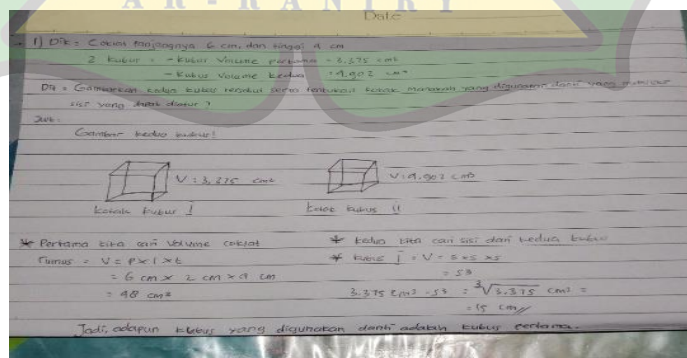 A R - R A N I R Y
Date
1) Dik : Coklat panjangnya 6 cm, dan tinggi 4 cm
2 kubus : - Kubus Volume pertama = 3.375 cm³
- Kubus Volume kedua = 4.902 cm³
Dit : Gambarkan kedua kubus tersebut serta tentukan kotak manakah yang digunakan danti yang memiliki
sisi yang dapat diatur ?
Jwb :
Gambar kedua kubus!
V : 3.375 cm³
V : 4.902 cm³
Kotak kubus I
Kotak kubus II
* Pertama kita cari Volume coklat
Rumus = V = P x l x t
= 6 cm x 2 cm x 4 cm
= 48 cm³
* kedua kita cari sisi dari kedua kubus
* kubus I = V = s x s x s
= s3
3.375 cm³ = s3 = ³√3.375 cm³ =
= 15 cm //
Jadi, adapun kubus yang digunakan danti adalah kubus pertama.